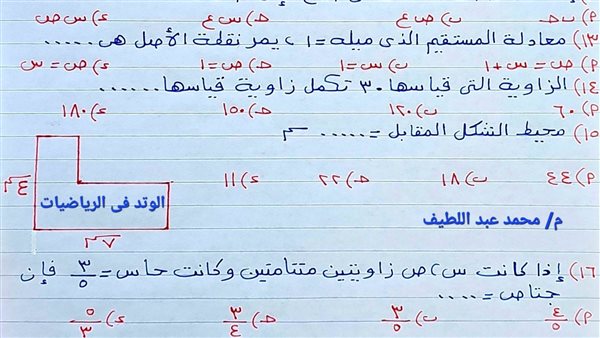 ٢) ب حـ ب) ص ع حـ) س ع ء) س ص
١٣) معادلة المستقيم الذى ميله = ١ ، يمر نقطة الأصل هى ......
٢) ص = س + ١ ب) س = ١ حـ) ص = ١ ء) ص = س
١٤) الزاوية التى قياسها ٣٠ تكمل زاوية قياسها .......
٢) ٦٠ ب) ١٢٠ حـ) ١٥٠ ء) ١٨٠
١٥) محيط الشكل المقابل = ...... سم
٢) ٤٤ ب) ١٨ حـ) ٢٢ ء) ١١
٤سم
الوتد فى الرياضيات
م/ محمد عبد اللطيف
٧سم
١٦) إذا كانت س ، ص زاويتين متتامتين وكانت حاس = ٣/٥ فإن
جتاص = .....
٢) ٤/٥ ب) ٣/٥ حـ) ٣/٤ ء) ٥/٣